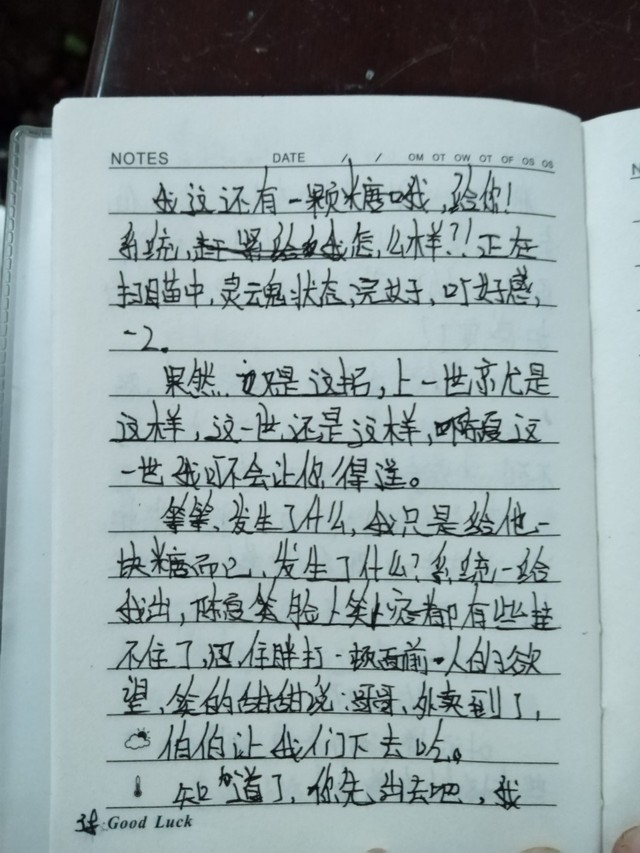 NOTES DATE / / OM OT OW OT OF OS OS
我这还有一颗糖哦,给你!
系统,怎么样?!正在
扫描中,灵魂状态,完好,好感,
-2。
果然又是这招,上一世就是
这样,这一世还是这样,这
一世我可不会让你得逞。
等等、发生了什么,我只是给他一
块糖而已,发生了什么?系统一给
我出,笑脸都有些挂
不住了,忍住胖打一顿面前一人的欲
望,笑的甜甜说:哥哥,外卖到了,
伯伯让我们下去吃。
知道了,你先出去吧,我
Good Luck